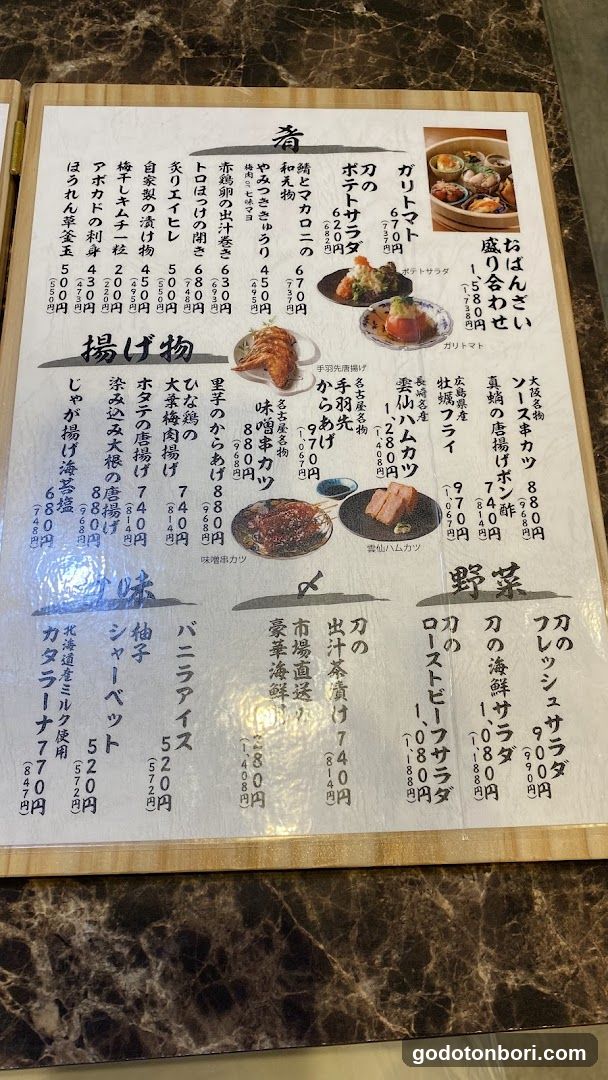 肴
おばんざい
盛り合わせ
1,580円
(1,738円)
ガリトマト
670円
(737円)
刀の
ポテトサラダ
620円
(682円)
鯖とマカロニの
和え物
670円
(737円)
やみつききゅうり
梅肉 or 七味マヨ
450円
(495円)
赤鶏卵の出汁巻き
630円
(693円)
トロほっけの開き
680円
(748円)
炙りエイヒレ
500円
(550円)
自家製の漬け物
450円
(495円)
梅干しキムチ一粒
200円
(220円)
アボカドの刺身
430円
(473円)
ほうれん草釜玉
500円
(550円)
ポテトサラダ
ガリトマト
揚げ物
手羽先唐揚げ
大阪名物
ソース串カツ
880円
(968円)
真蛸の唐揚げポン酢
740円
(814円)
広島県産
牡蠣フライ
970円
(1,067円)
長崎名産
雲仙ハムカツ
1,280円
(1,408円)
名古屋名物
手羽先
からあげ
970円
(1,067円)
名古屋名物
味噌串カツ
880円
(968円)
里芋のからあげ
880円
(968円)
ひな鶏の
大葉梅肉揚げ
740円
(814円)
ホタテの唐揚げ
740円
(814円)
染み込み大根の唐揚げ
880円
(968円)
じゃが揚げ海苔塩
680円
(748円)
味噌串カツ
雲仙ハムカツ
野菜
刀の
フレッシュサラダ
900円
(990円)
刀の海鮮サラダ
1,080円
(1,188円)
刀の
ローストビーフサラダ
1,080円
(1,188円)
〆
刀の
出汁茶漬け
740円
(814円)
市場直送
豪華海鮮
280円
(1,408円)
味
バニラアイス
520円
(572円)
柚子
シャーベット
520円
(572円)
北海道産ミルク使用
カタラーナ
770円
(847円)
godotonbori.com